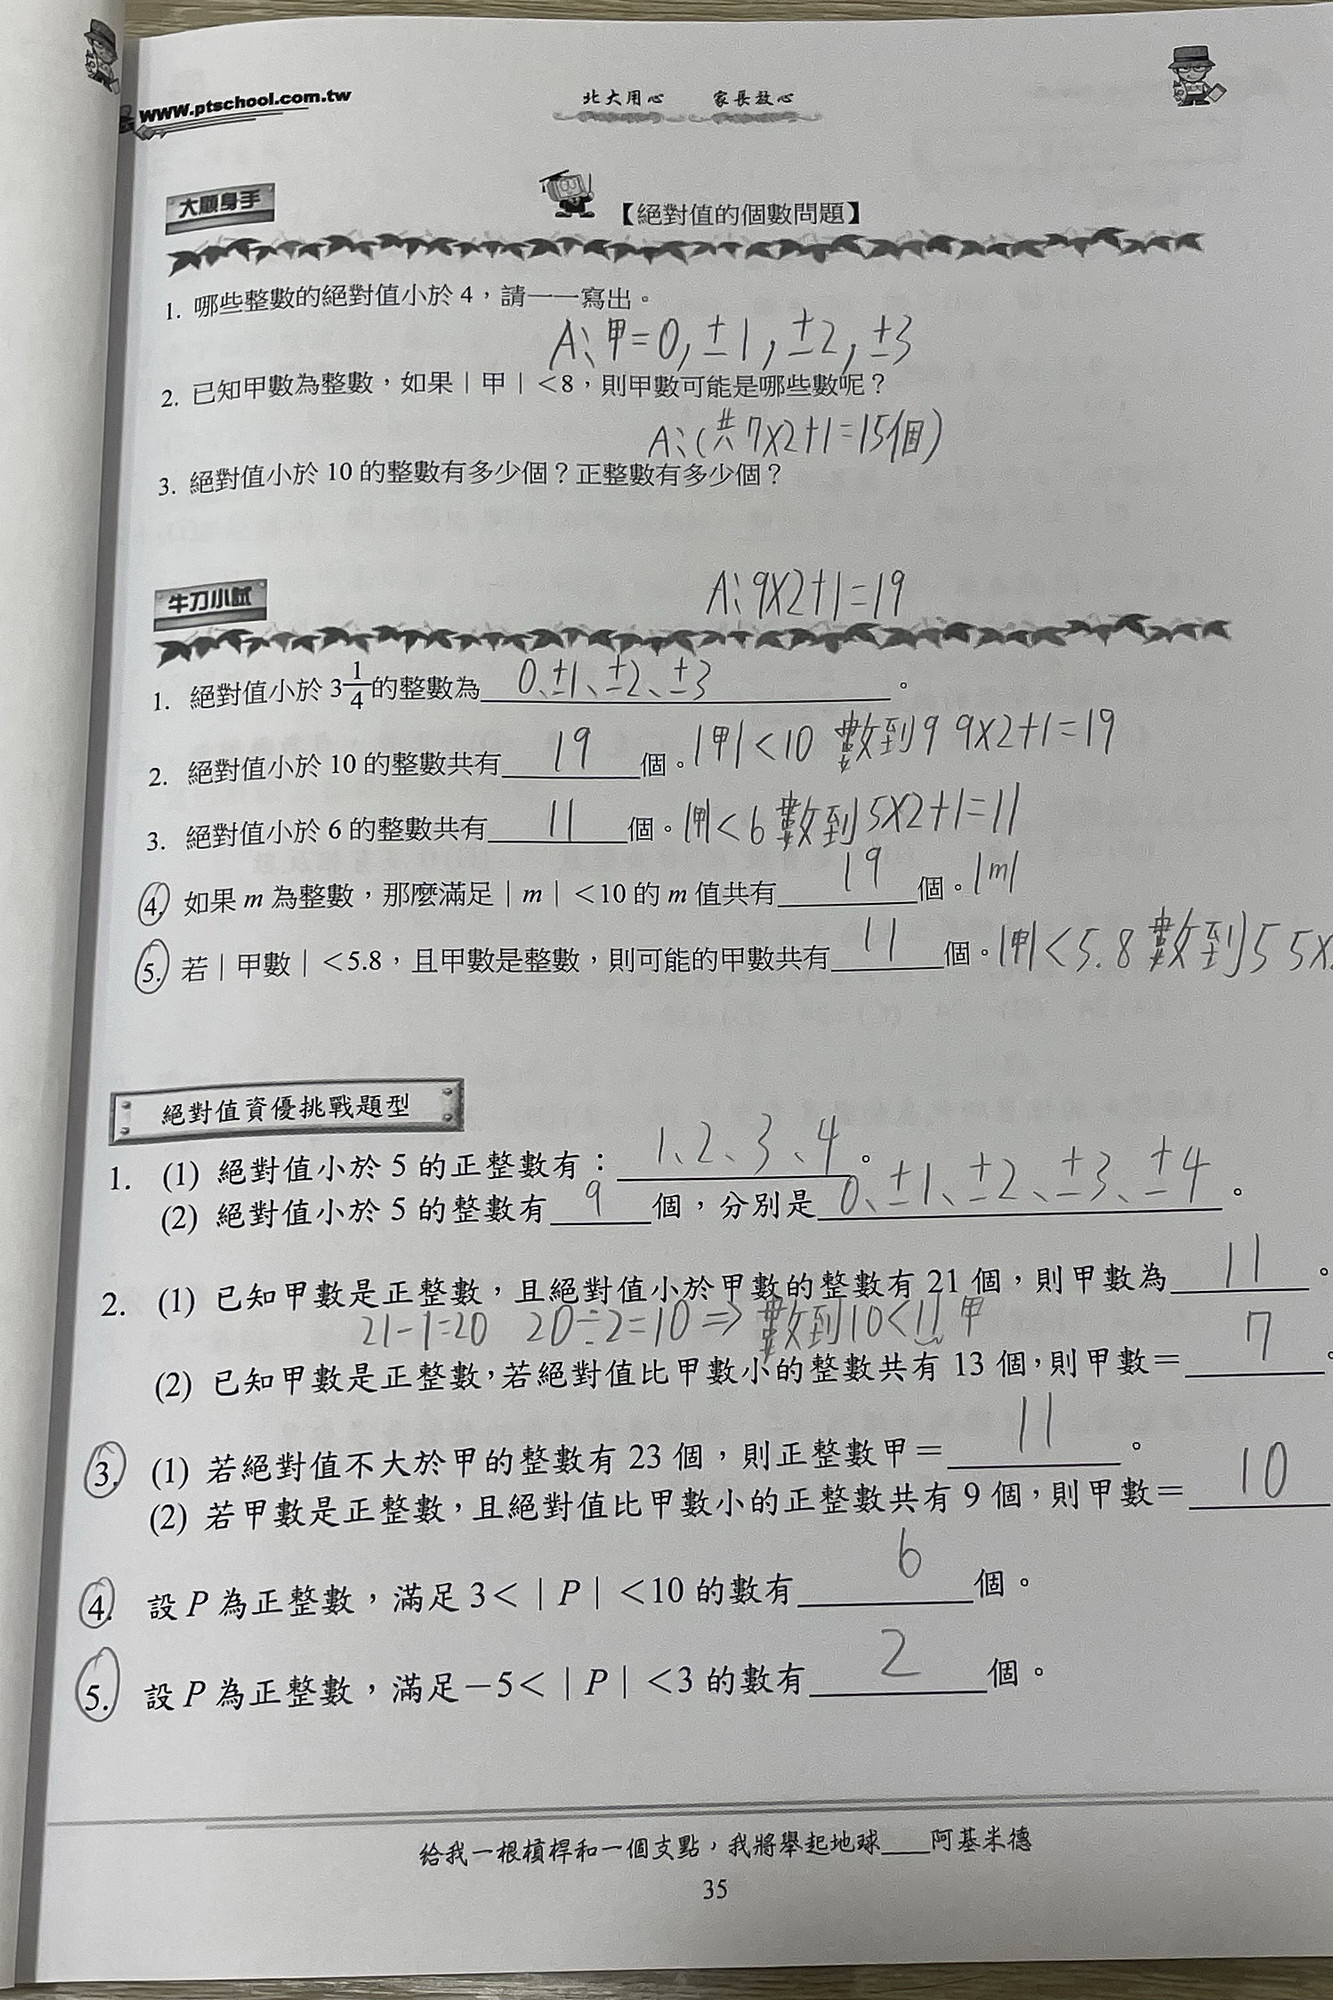 www.ptschool.com.tw 北大用心 家長放心
大顯身手
【絕對值的個數問題】
1. 哪些整數的絕對值小於 4，請一一寫出。
A：甲=0, ±1, ±2, ±3
2. 已知甲數為整數，如果 | 甲 | <8，則甲數可能是哪些數呢？
A：(共7x2+1=15個)
3. 絕對值小於 10 的整數有多少個？正整數有多少個？
A：9x2+1=19
牛刀小試
1. 絕對值小於 3 1/4 的整數為 0、±1、±2、±3 。
2. 絕對值小於 10 的整數共有 19 個。|甲|<10 數到9 9x2+1=19
3. 絕對值小於 6 的整數共有 11 個。|甲|<6 數到5x2+1=11
4. 如果 m 為整數，那麼滿足 | m | <10 的 m 值共有 19 個。|m|
5. 若 | 甲數 | <5.8，且甲數是整數，則可能的甲數共有 11 個。|甲|<5.8 數到5 5x
絕對值資優挑戰題型
1. (1) 絕對值小於 5 的正整數有： 1、2、3、4 。
(2) 絕對值小於 5 的整數有 9 個，分別是 0、±1、±2、±3、±4 。
2. (1) 已知甲數是正整數，且絕對值小於甲數的整數有 21 個，則甲數為 11 。
21-1=20 20÷2=10 ⇒ 數到10<11 甲
(2) 已知甲數是正整數，若絕對值比甲數小的整數共有 13 個，則甲數＝ 7 。
3. (1) 若絕對值不大於甲的整數有 23 個，則正整數甲＝ 11 。
(2) 若甲數是正整數，且絕對值比甲數小的正整數共有 9 個，則甲數＝ 10
4. 設 P 為正整數，滿足 3< | P | <10 的數有 6 個。
5. 設 P 為正整數，滿足－5< | P | <3 的數有 2 個。
給我一根槓桿和一個支點，我將舉起地球___阿基米德
35